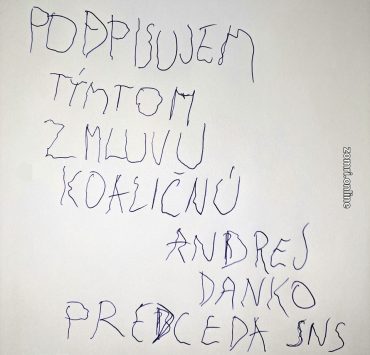 PODPISUJEM
TÝMTOM
ZMLUVU
KOALIČNÚ
ANDREJ
DANKO
PREDCEDA SNS
zomri.online